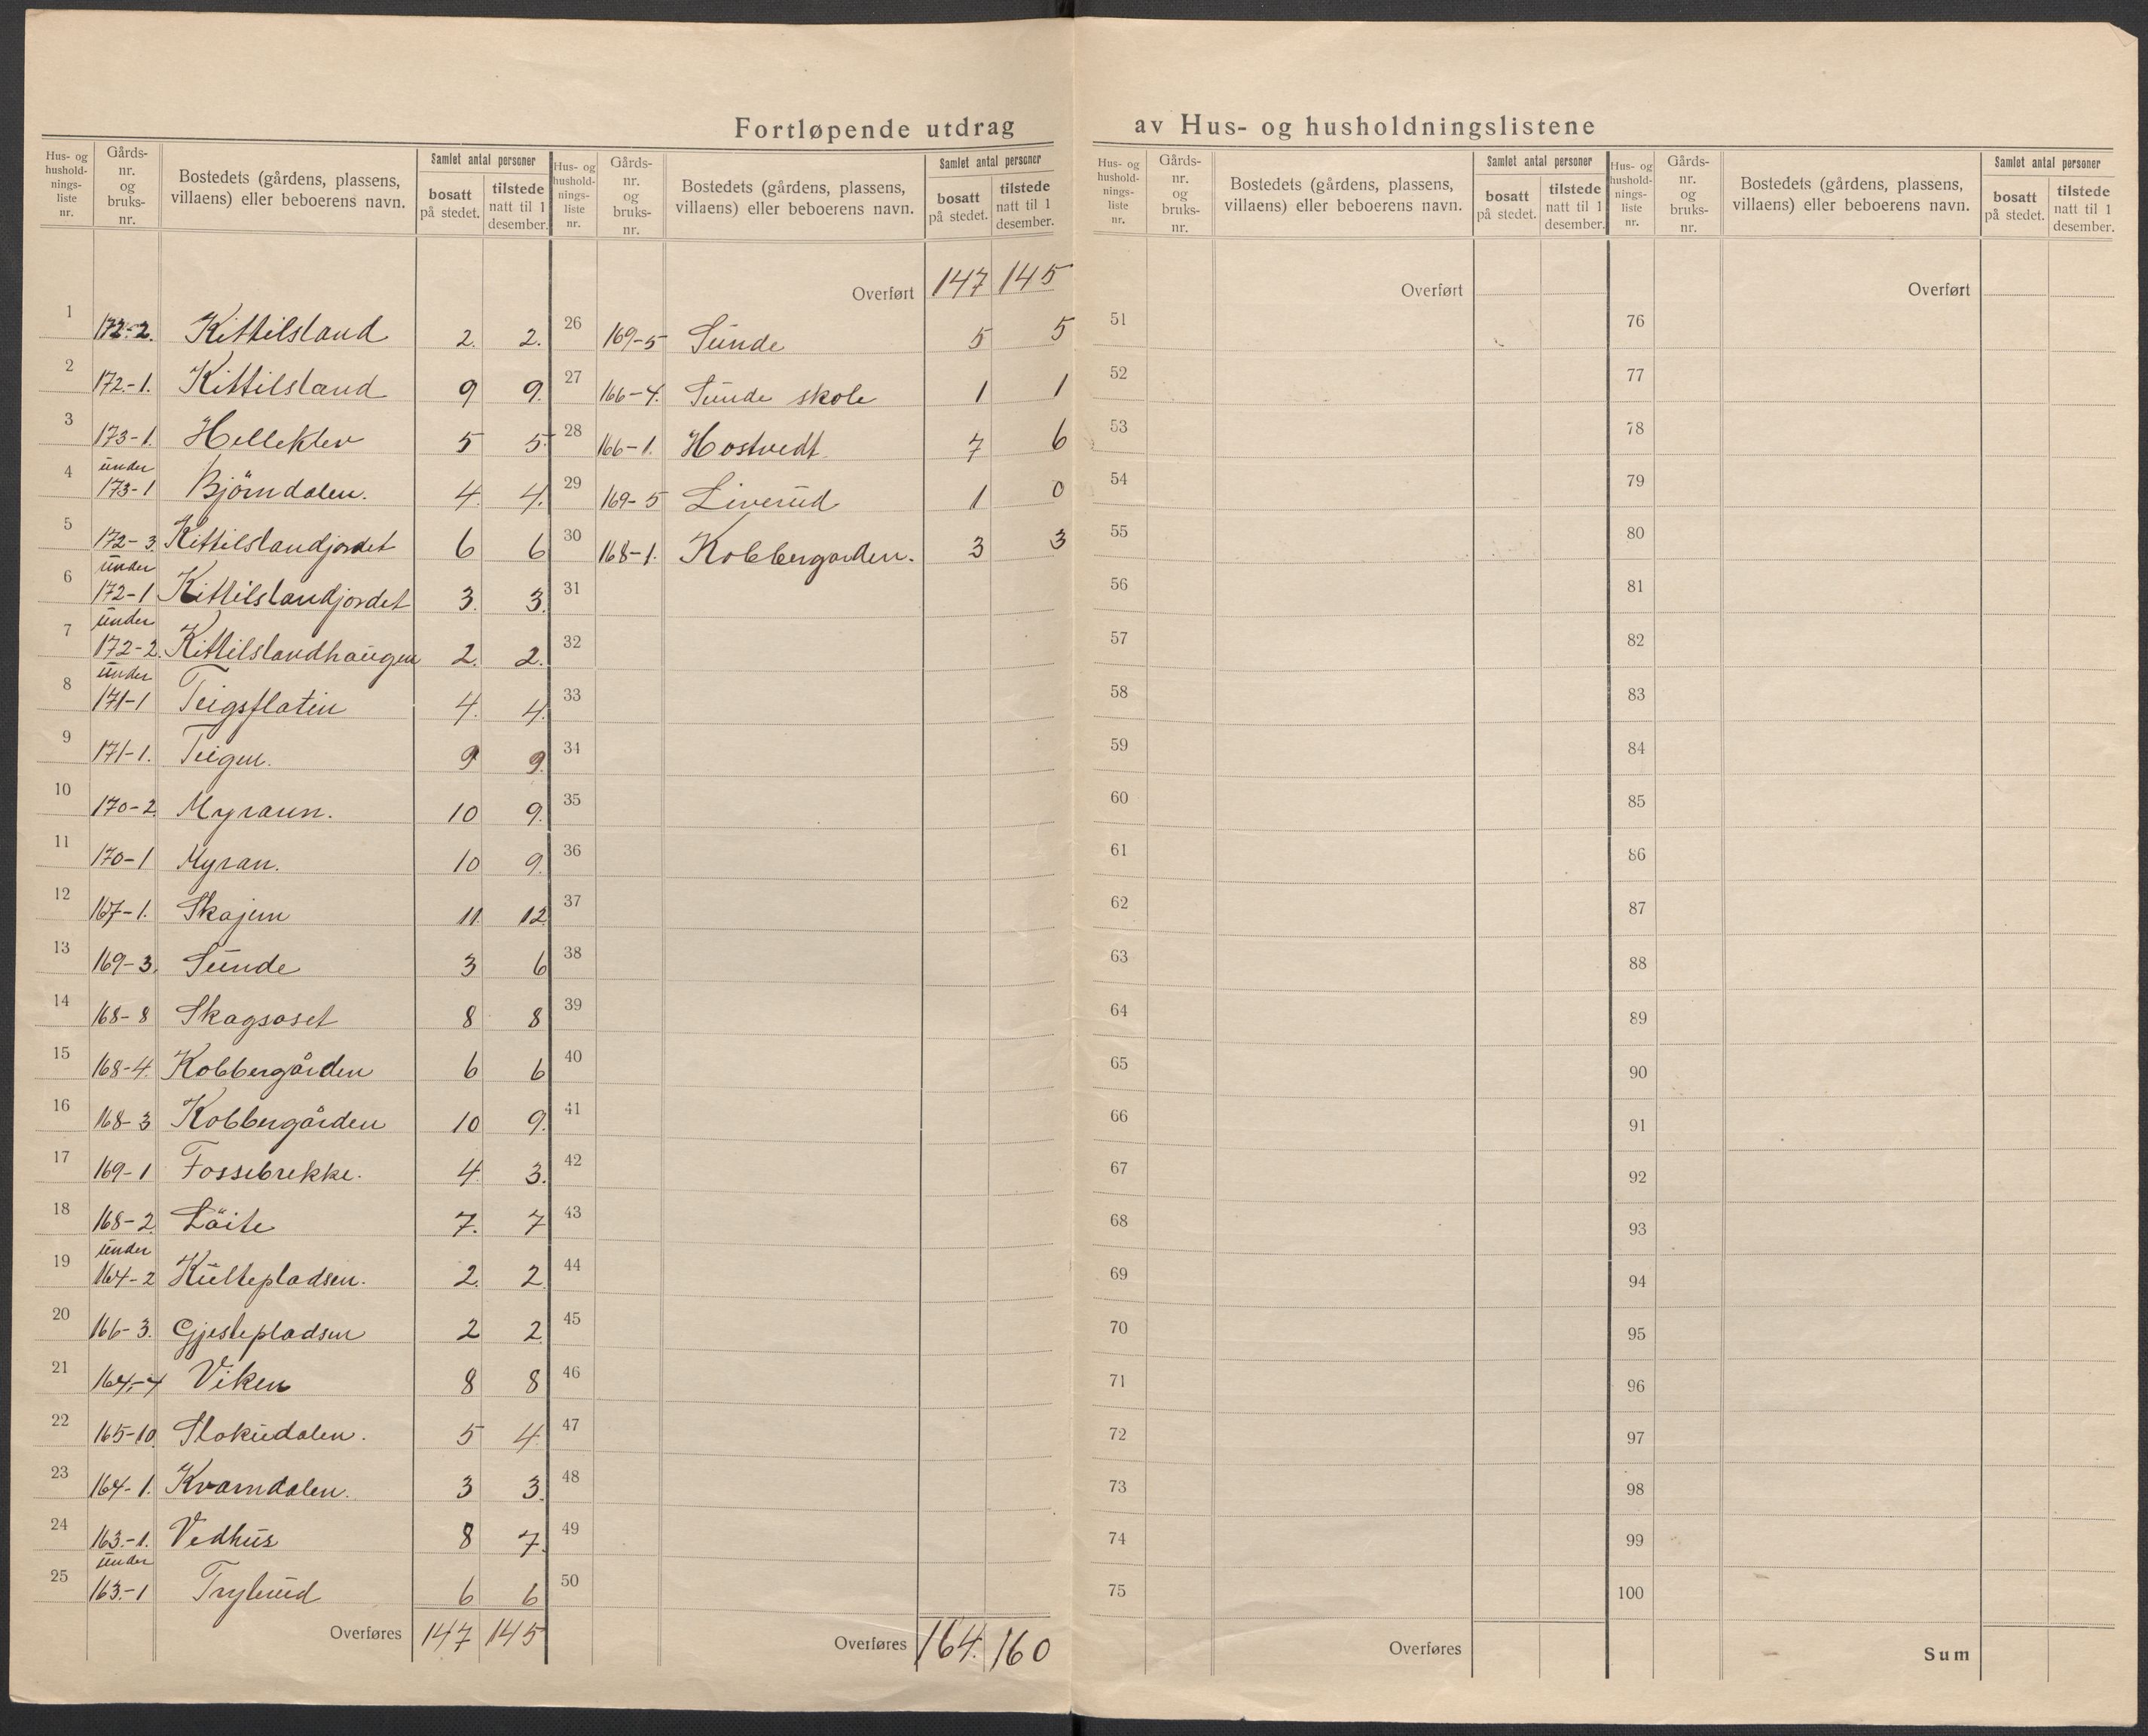 Fortløpende utdrag av Hus- og husholdningslistene
Hus- og hushold-nings-liste nr. Gårds-nr. og bruks-nr. Bostedets (gårdens, plassens, villaens) eller beboerens navn. Samlet antal personer bosatt på stedet. tilstede natt til 1 desember.
1 172-2. Kittilsland 2. 2.
2 172-1. Kittilsland 9 9.
3 173-1. Helleklev 5 5
4 under 173-1 Björndalen. 4. 4.
5 172-3. Kittilslandjordet 6 6
6 under 172-1 Kittilslandjordet 3. 3.
7 under 172-2. Kittilslandhaugen 2. 2.
8 under 171-1 Teigsflatin 4. 4.
9 171-1. Teigen. 9 9.
10 170-2 Myraun. 10 9.
11 170-1 Myran. 10 9.
12 167-1. Skajem 11. 12
13 169-3. Sunde 3 6
14 168-8 Skagsoset 8 8
15 168-4. Kobbergården 6 6
16 168-3 Kobbergården 10 9.
17 169-1 Fossebrekke. 4. 3.
18 168-2 Löite 7. 7
19 under 164-2 Kultepladsen. 2. 2
20 166-3. Gjestepladsen 2 2
21 164-4 Viken 8 8
22 165-10 Slokudalen. 5 4
23 164-1. Kvarndalen. 3 3.
24 163.-1. Vedhus 8 7.
25 under 163.-1 Trylerud 6 6
Overføres 147 145
Hus- og hushold-nings-liste nr. Gårds-nr. og bruks-nr. Bostedets (gårdens, plassens, villaens) eller beboerens navn. Samlet antal personer bosatt på stedet. tilstede natt til 1 desember.
Overført 147 145
26 169-5 Sunde 5 5
27 166-4. Sunde skole 1 1
28 166-1. Hostvedt 7 6
29 169-5 Liverud 1 0
30 168-1. Kobbergarden. 3 3
31
32
33
34
35
36
37
38
39
40
41
42
43
44
45
46
47
48
49
50
Overføres 164. 160
Hus- og hushold-nings-liste nr. Gårds-nr. og bruks-nr. Bostedets (gårdens, plassens, villaens) eller beboerens navn. Samlet antal personer bosatt på stedet. tilstede natt til 1 desember.
Overført
51
52
53
54
55
56
57
58
59
60
61
62
63
64
65
66
67
68
69
70
71
72
73
74
75
Overføres
Hus- og hushold-nings-liste nr. Gårds-nr. og bruks-nr. Bostedets (gårdens, plassens, villaens) eller beboerens navn. Samlet antal personer bosatt på stedet. tilstede natt til 1 desember.
Overført
76
77
78
79
80
81
82
83
84
85
86
87
88
89
90
91
92
93
94
95
96
97
98
99
100
Sum